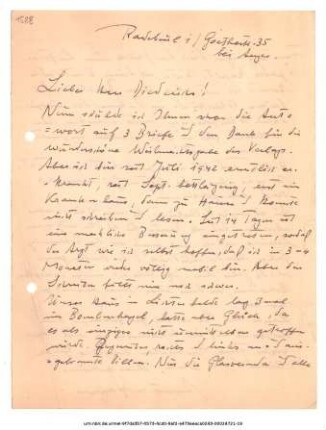 1588
Radebeul 1 / Goethestr. 35
bei
Lieber Herr Diederichs!
Nun schulde ich Ihnen von die Ant=
=wort auf 3 Briefe u. den Dank für die
wundervolle des Verlags.
Aber ich bin seit Juli 1942 ernstlich er-
=krankt, seit Sept. bettlägrig, erst im
Krankenhaus, dann zu Hause u. konnte
nicht schreiben u. lesen. Seit 14 Tagen ist
eine merkliche Besserung eingetreten, sodaß
der Arzt wie ich selbst hoffen, daß ich in 3-4
Monaten wieder völlig mobil bin. Aber das
Schreiben fällt mir noch schwer.
Unser Haus in lag 3 mal
im Bombenhagel, hatte aber Glück, da
es als einziges nicht unmittelbar getroffen
wurde. Gegenüber, rechts u. links aus=
=gebrannte Villen. Nur die